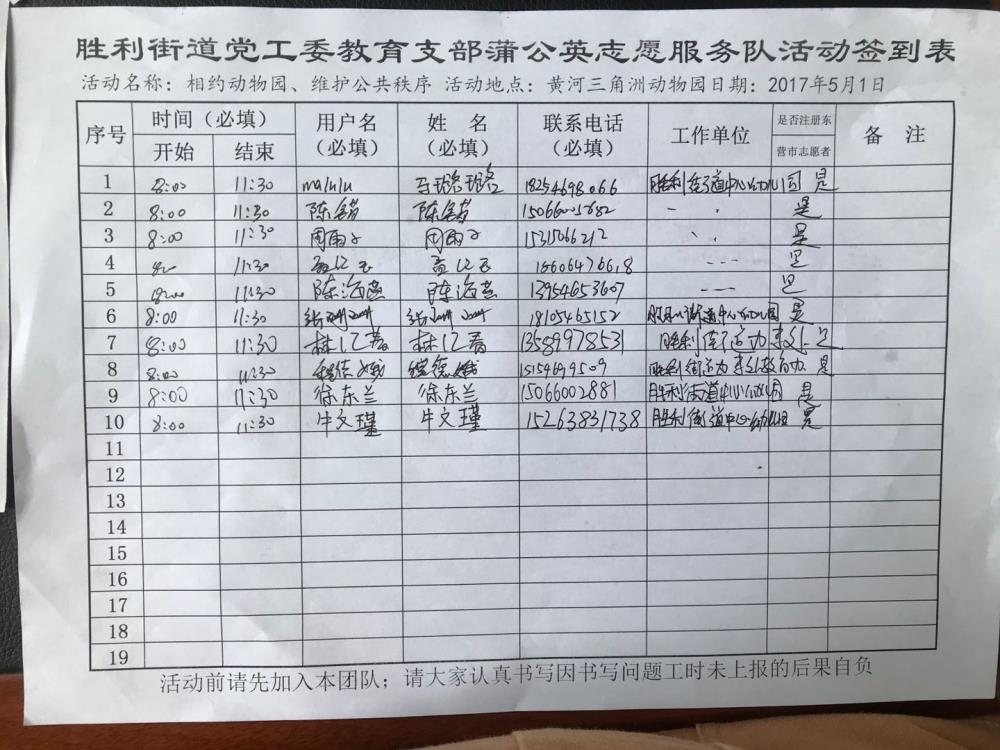 胜利街道党工委教育支部蒲公英志愿服务队活动签到表
活动名称：相约动物园、维护公共秩序 活动地点：黄河三角洲动物园日期：2017年5月1日
序号 时间（必填） 用户名（必填） 姓 名（必填） 联系电话（必填） 工作单位 是否注册东营市志愿者 备 注
开始 结束
1 8:00 11:30 malulu 马璐璐 18254698066 胜利街道中心幼儿园 是
2 8:00 11:30 陈 陈 是
3 8:00 11:30 周雨 周雨 15315066212 是
4 11:30 15606476618 是
5 8:00 11:30 陈海燕 陈海燕 13954653607 是
6 8:00 11:30 张 张 18105465152 胜利街道中心幼儿园 是
7 8:00 11:30 林汇春 林汇春 13589978531 胜利街道办 是
8 8:00 11:30 15154699509 胜利街道办 教育办 是
9 8:00 11:30 徐东兰 徐东兰 15066002881 胜利街道中心幼儿园 是
10 8:00 11:30 牛文瑾 牛文瑾 15263831738 胜利街道中心幼儿园 是
11
12
13
14
15
16
17
18
19
活动前请先加入本团队；请大家认真书写因书写问题工时未上报的后果自负